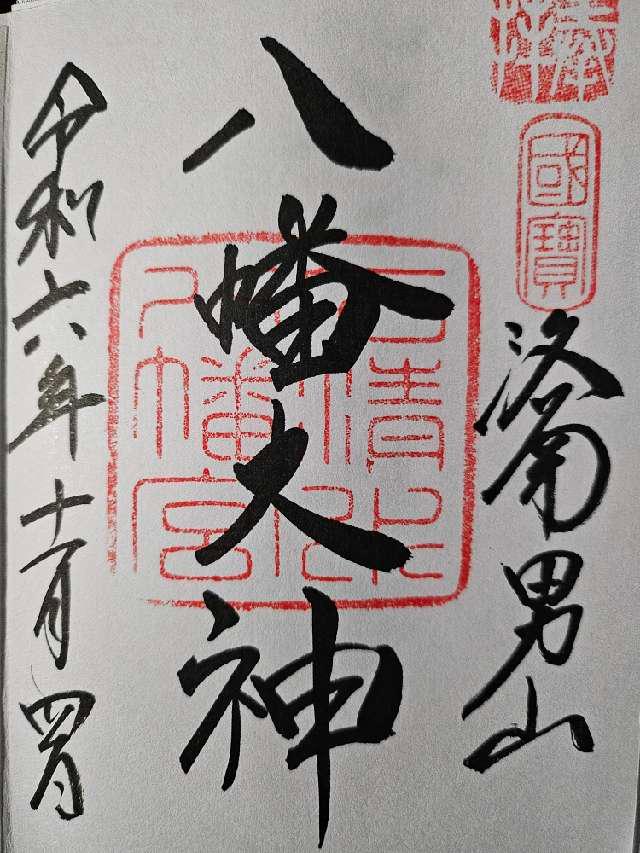 國寳
洛南男山
八幡大神
石清水
八幡宮
令和六年十一月四日